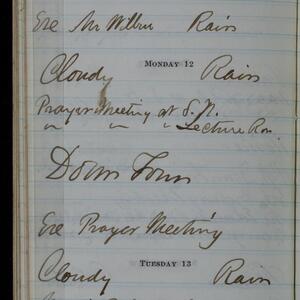 Eve Mr Wilbur Rain
MONDAY 12
Cloudy Rain
Prayer Meeting at S.N.
" " " Lecture Rm.
Down Town
Eve Prayer Meeting
TUESDAY 13
Cloudy Rain